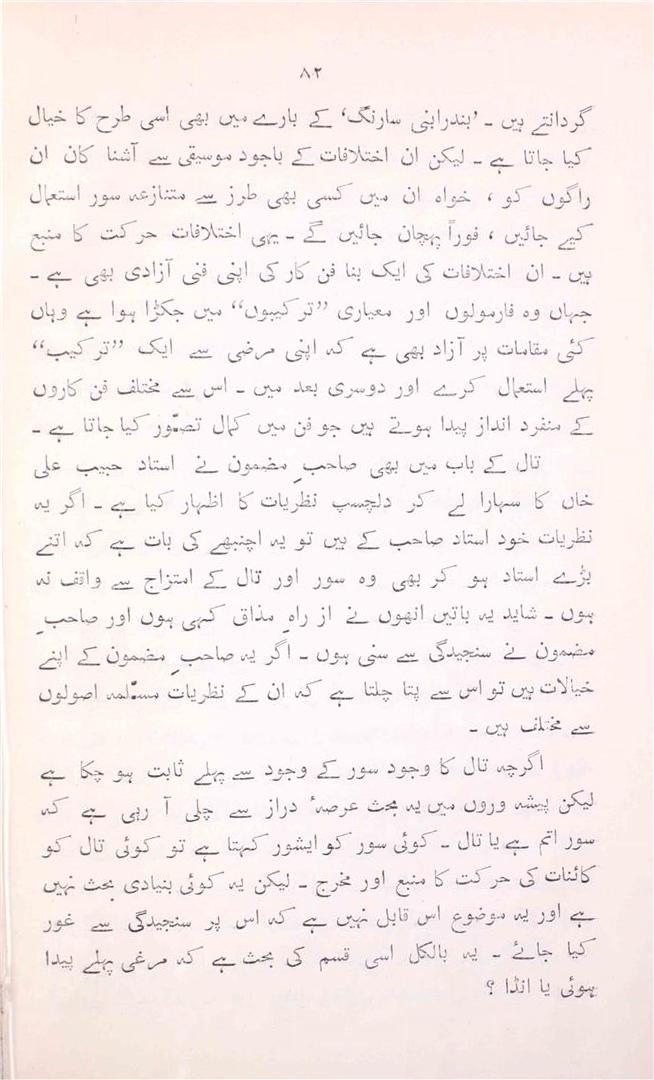 ۸۲
گردانتے ہیں ۔ ’بندرابنی سارنگ‘ کے بارے میں بھی اسی طرح کا خیال
کیا جاتا ہے ۔ لیکن ان اختلافات کے باجود موسیقی سے آشنا کان ان
راگوں کو ، خواہ ان میں کسی بھی طرز سے متنازعہ سور استعمال
کیے جائیں ، فوراً پہچان جائیں گے ۔ یہی اختلافات حرکت کا منبع
ہیں ۔ ان اختلافات کی ایک بنا فن کار کی اپنی فنی آزادی بھی ہے ۔
جہاں وہ فارمولوں اور معیاری ”ترکیبوں“ میں جکڑا ہوا ہے وہاں
کئی مقامات پر آزاد بھی ہے کہ اپنی مرضی سے ایک ”ترکیب“
پہلے استعمال کرے اور دوسری بعد میں ۔ اس سے مختلف فن کاروں
کے منفرد انداز پیدا ہوتے ہیں جو فن میں کمال تصّور کیا جاتا ہے ۔
تال کے باب میں بھی صاحبِ مضمون نے استاد حبیب علی
خاں کا سہارا لے کر دلچسپ نظریات کا اظہار کیا ہے ۔ اگر یہ
نظریات خود استاد صاحب کے ہیں تو یہ اچنبھے کی بات ہے کہ اتنے
بڑے استاد ہو کر بھی وہ سور اور تال کے امتزاج سے واقف نہ
ہوں ۔ شاید یہ باتیں انھوں نے از راہِ مذاق کہی ہوں اور صاحبِ
مضمون نے سنجیدگی سے سنی ہوں ۔ اگر یہ صاحبِ مضمون کے اپنے
خیالات ہیں تو اس سے پتا چلتا ہے کہ ان کے نظریات مسّلمہ اصولوں
سے مختلف ہیں ۔
اگرچہ تال کا وجود سور کے وجود سے پہلے ثابت ہو چکا ہے
لیکن پیشہ وروں میں یہ بحث عرصۂ دراز سے چلی آ رہی ہے کہ
سور اتم ہے یا تال ۔ کوئی سور کو ایشور کہتا ہے تو کوئی تال کو
کائنات کی حرکت کا منبع اور مخرج ۔ لیکن یہ کوئی بنیادی بحث نہیں
ہے اور یہ موضوع اس قابل نہیں ہے کہ اس پر سنجیدگی سے غور
کیا جائے ۔ یہ بالکل اسی قسم کی بحث ہے کہ مرغی پہلے پیدا
ہوئی یا انڈا ؟